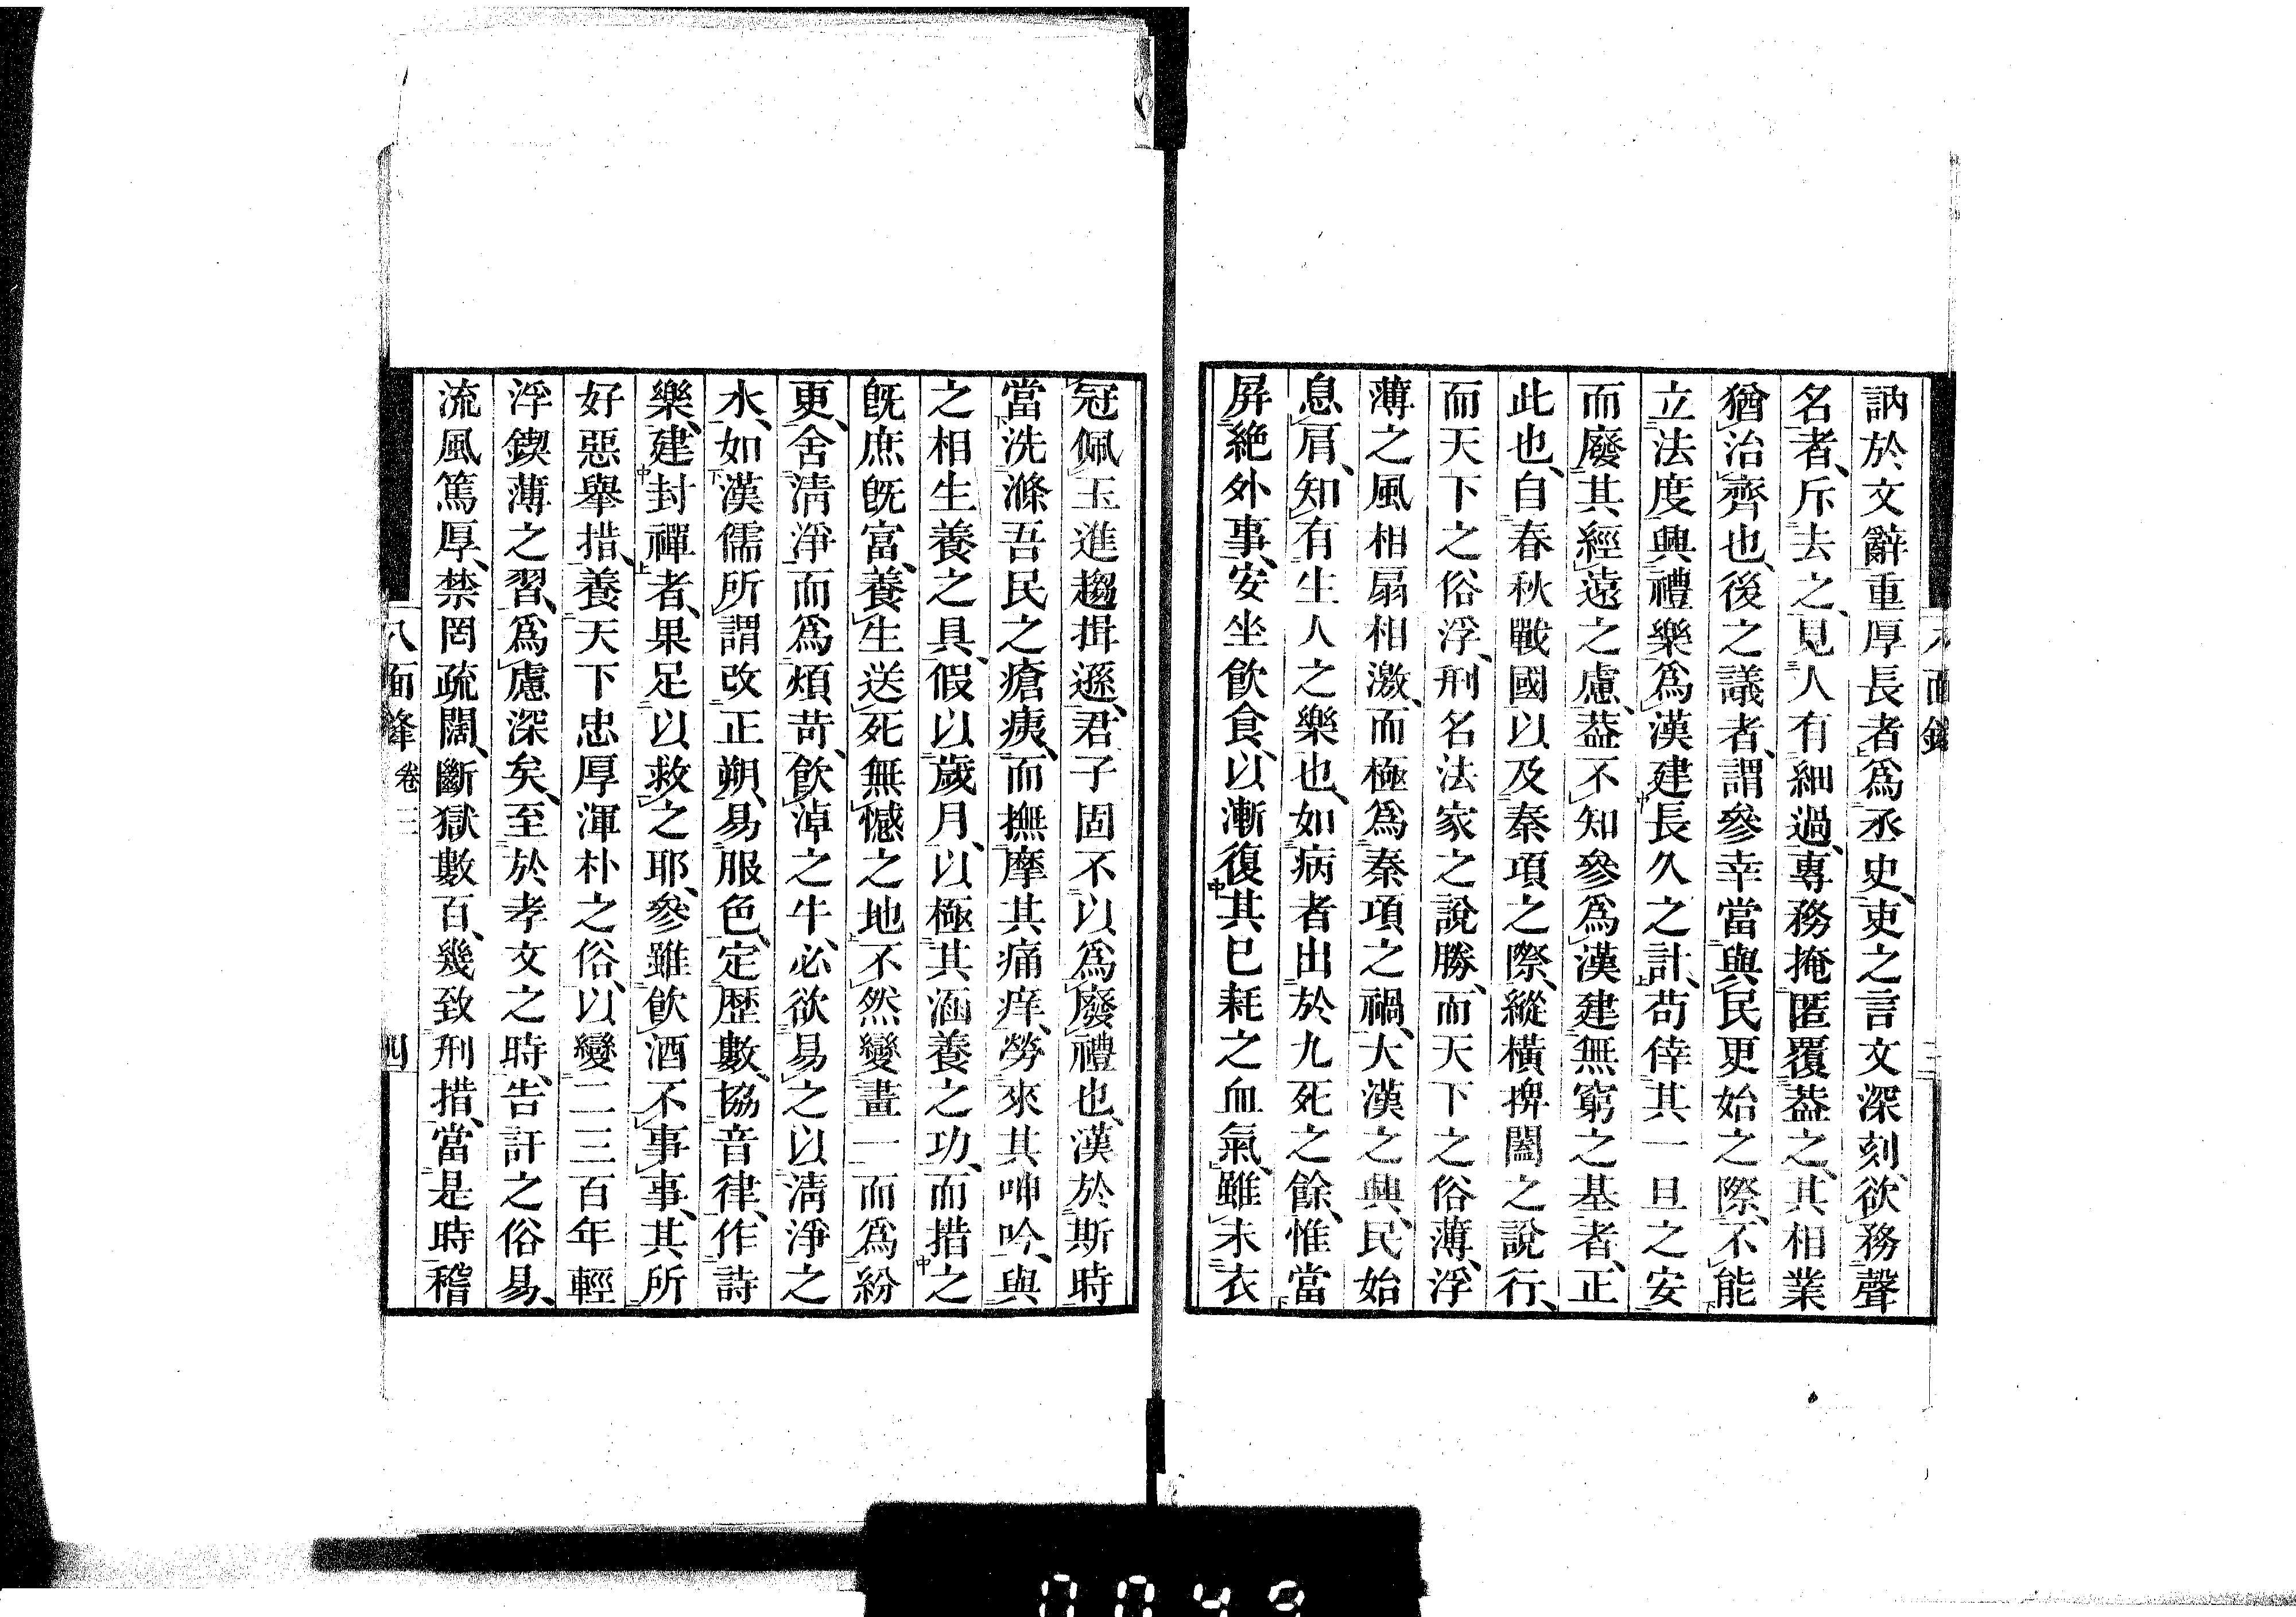 訥於文辭重厚長者爲丞史、吏之言文深刻、欲務聲
名者、斥去之、見人有細過、專務掩匿覆葢之、其相業
猶治齊也、後之議者、謂參幸當與民更始之際、不能
立法度興禮樂爲漢建長久之計、苟倖其一旦之安
而廢其經遠之慮、葢不知參爲漢建無窮之基者、正
此也、自春秋戰國以及秦項之際、縱橫捭闔之說行、
而天下之俗浮、刑名法家之說勝、而天下之俗薄、浮
薄之風相扇相激、而極爲秦項之禍、大漢之興、民始
息肩、知有生人之樂也、如病者出於九死之餘、惟當
屏絶外事、安坐飮食、以漸復其已耗之血氣、雖未衣
冠佩玉進趨揖遜、君子固不以爲廢禮也、漢於斯時
當洗滌吾民之瘡痍、而撫摩其痛痒、勞來其呻吟、與
之相生養之具、假以歲月、以極其涵養之功、而措之
旣庶旣富、養生送死無憾之地、不然變畫一而爲紛
更、舍淸淨而爲煩苛、飮淖之牛、必欲易之以淸淨之
水、如漢儒所謂改正朔、易服色、定歷數、協音律、作詩
樂、建封禪者、果足以救之耶、參雖飮酒不事事、其所
好惡舉措、養天下忠厚渾朴之俗、以變二三百年輕
浮鍥薄之習、爲慮深矣、至於孝文之時、告訐之俗易、
流風篤厚、禁罔疏闊、斷獄數百、幾致刑措、當是時稽
八面鋒 卷三 四
0049